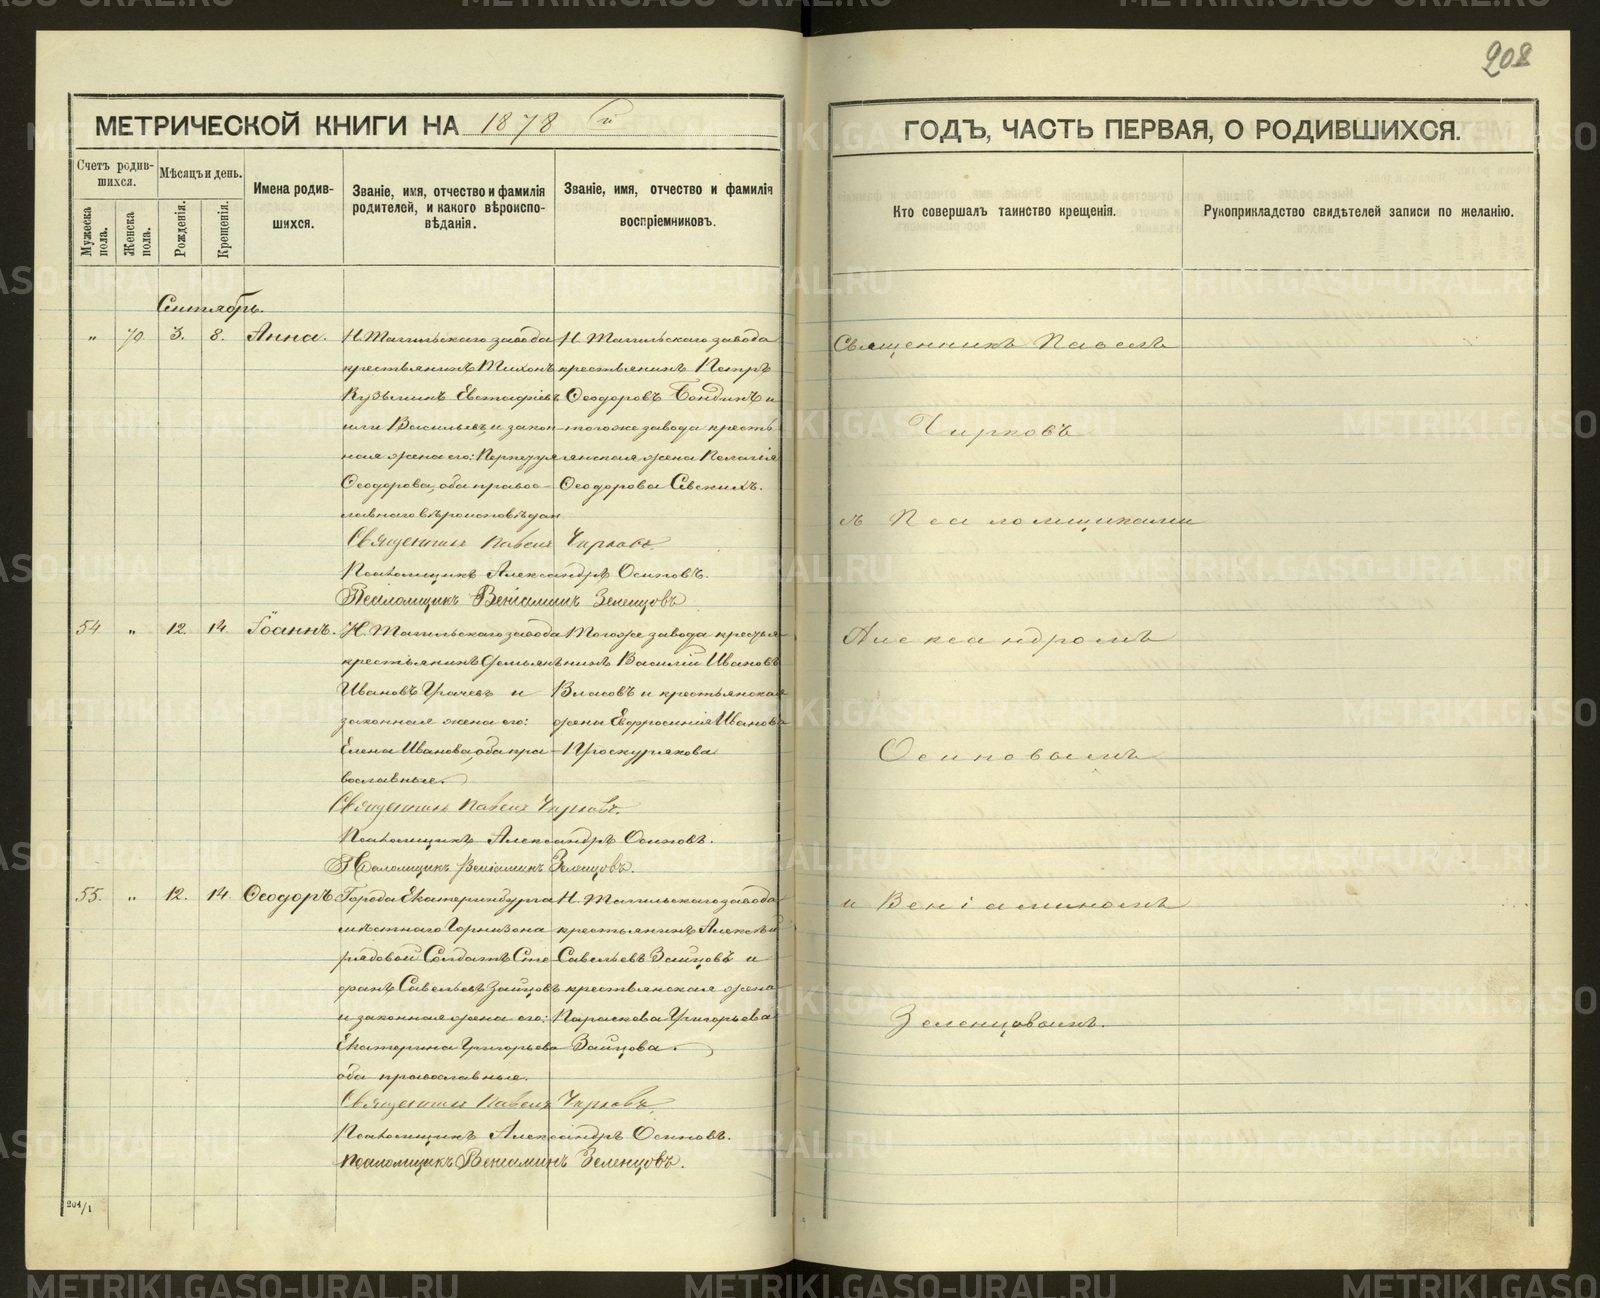 208
МЕТРИЧЕСКОЙ КНИГИ НА 1878 й
ГОДЪ, ЧАСТЬ ПЕРВАЯ, О РОДИВШИХСЯ.
Счетъ родив-
шихся.
Мѣсяцъ и день.
Мужеска пола.
Женска пола.
Рожденія.
Крещенія.
Имена родив-
шихся.
Званіе, имя, отчество и фамилія
родителей, и какого вѣроиспо-
вѣданія.
Званіе, имя, отчество и фамилія
воспріемниковъ.
Кто совершалъ таинство крещенія.
Рукоприкладство свидѣтелей записи по желанію.
Сентябрь.
" 70. 3. 8. Анна.
Н. Тагильскаго завода
крестьянинъ Тихонъ
Кузьминъ Евстафіевъ
или Васильевъ, и закон-
ная жена его:
Ѳеодорова, оба правос-
лавнаго вѣроисповѣдан
Н. Тагильскаго завода
крестьянинъ Петръ
Ѳеодоровъ Бондинъ и
тогоже завода кресть
янская жена Пелагія
Ѳеодорова Севскихъ.
Священникъ Павелъ Чирковъ.
Псаломщикъ Александръ Осиповъ.
Псаломщикъ Веніаминъ Зеленцовъ
54 " 12. 14. Іоаннъ.
Н. Тагильскаго завода
крестьянинъ Демьянъ
Ивановъ Грачевъ и
законная жена его:
Елена Иванова, оба пра-
вославные.
Тогоже завода крестья
нинъ Василій Ивановъ
Власовъ и крестьянская
жена Евфросинія Иванова
Проскурякова
Священникъ Павелъ Чирковъ.
Псаломщикъ Александръ Осиповъ.
Псаломщикъ Веніаминъ Зеленцовъ.
55. " 12. 14. Ѳеодоръ
Города Екатеринбурга
мѣстнаго Горнизона
рядовой Солдатъ Сте
фанъ Савельевъ Зайцовъ
и законная жена его:
Екатерина Григорьева
оба православные.
Н. Тагильскаго завода
крестьянинъ Алексѣй
Савельевъ Зайцовъ и
крестьянская жена
Параскева Григорьева
Зайцова.
Священникъ Павелъ Чирковъ.
Псаломщикъ Александръ Осиповъ.
Псаломщикъ Веніаминъ Зеленцовъ.
201/1
Священникъ Павелъ
Чирковъ
съ Псаломщиками
Александромъ
Осиповымъ
и Веніаминомъ
Зеленцовымъ.
METRIKI.GASO-URAL.RU